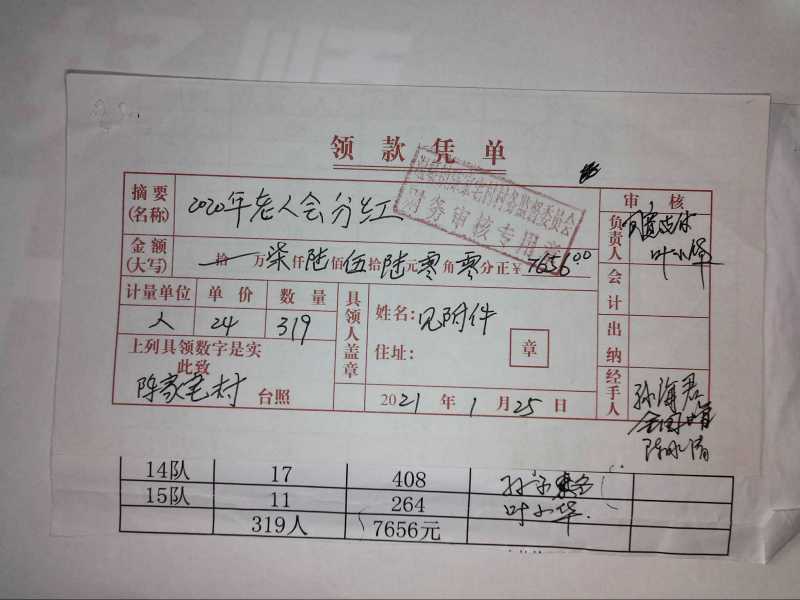 领款凭单
摘要(名称) 2020年老人会分红
财务审核专用章
审核
金额(大写) 拾 万 柒仟 陆佰 伍拾 陆元 零角 零分正 ¥ 7656.00
负责人
会计
出纳
经手人 孙海君
陈水清
计量单位 单价 数量
人 24 319
具领人盖章
姓名: 见附件
住址:
章
上列具领数字是实
此致
陈家宅村 台照
2021年1月25日
14队 17 408
15队 11 264 叶小华
319人 7656元